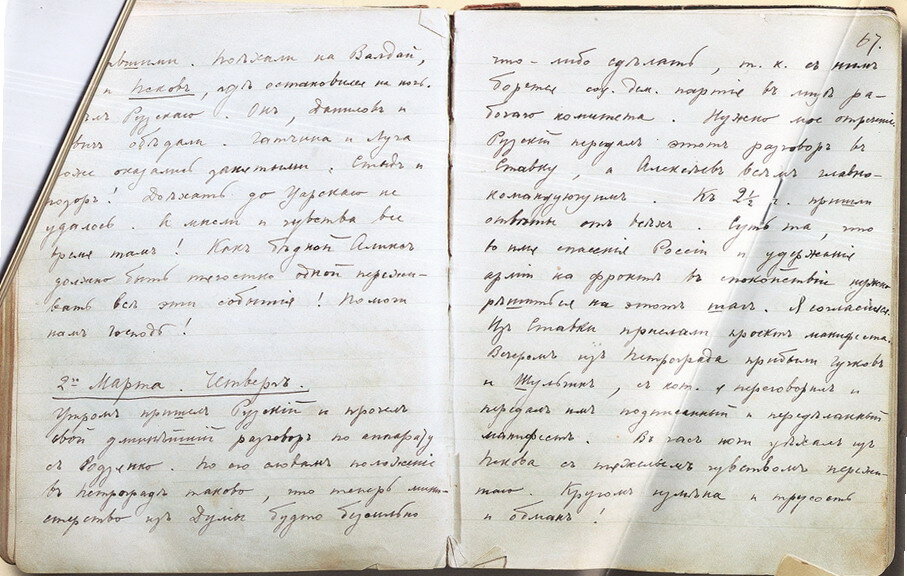 шими. Поѣхали на Валдай,
и Псковъ, гдѣ остановился на ночь.
Рузскаго. Онъ, Даниловъ и
обѣдали. Гатчина и Луга
оказались занятыми. Стыдъ и
позоръ! Доѣхать до Царскаго не
удалось. А мысли и чувства все
время тамъ! Какъ бѣдной Аликсъ
должно быть тягостно одной пережи-
вать всѣ эти событія! Помоги
намъ Господь!
2го Марта. Четвергъ.
Утромъ пришелъ Рузскій и прочелъ
свой длиннѣйшій разговоръ по аппарату
съ Родзянко. По его словамъ положеніе
въ Петроградѣ таково, что теперь мини-
стерство изъ Думы будто безсильно
67.
что-либо сдѣлать, т. к. съ нимъ
борется соц. дем. партія въ лицѣ ра-
бочаго комитета. Нужно мое отреченіе.
Рузскій передалъ этотъ разговоръ въ
Ставку, а Алексѣевъ всѣмъ главно-
командующимъ. Къ 2½ ч. пришли
отвѣты отъ всѣхъ. Суть та, что
во имя спасенія Россіи и удержанія
арміи на фронтѣ въ спокойствіи нужно
рѣшиться на этотъ шагъ. Я согласился.
Изъ Ставки прислали проектъ манифеста.
Вечеромъ изъ Петрограда прибыли Гучковъ
и Шульгинъ, съ кот. я переговорилъ и
передалъ имъ подписанный и передѣланный
манифестъ. Въ часъ ночи уѣхалъ изъ
Пскова съ тяжелымъ чувствомъ пережи-
таго. Кругомъ измѣна и трусость
и обманъ!